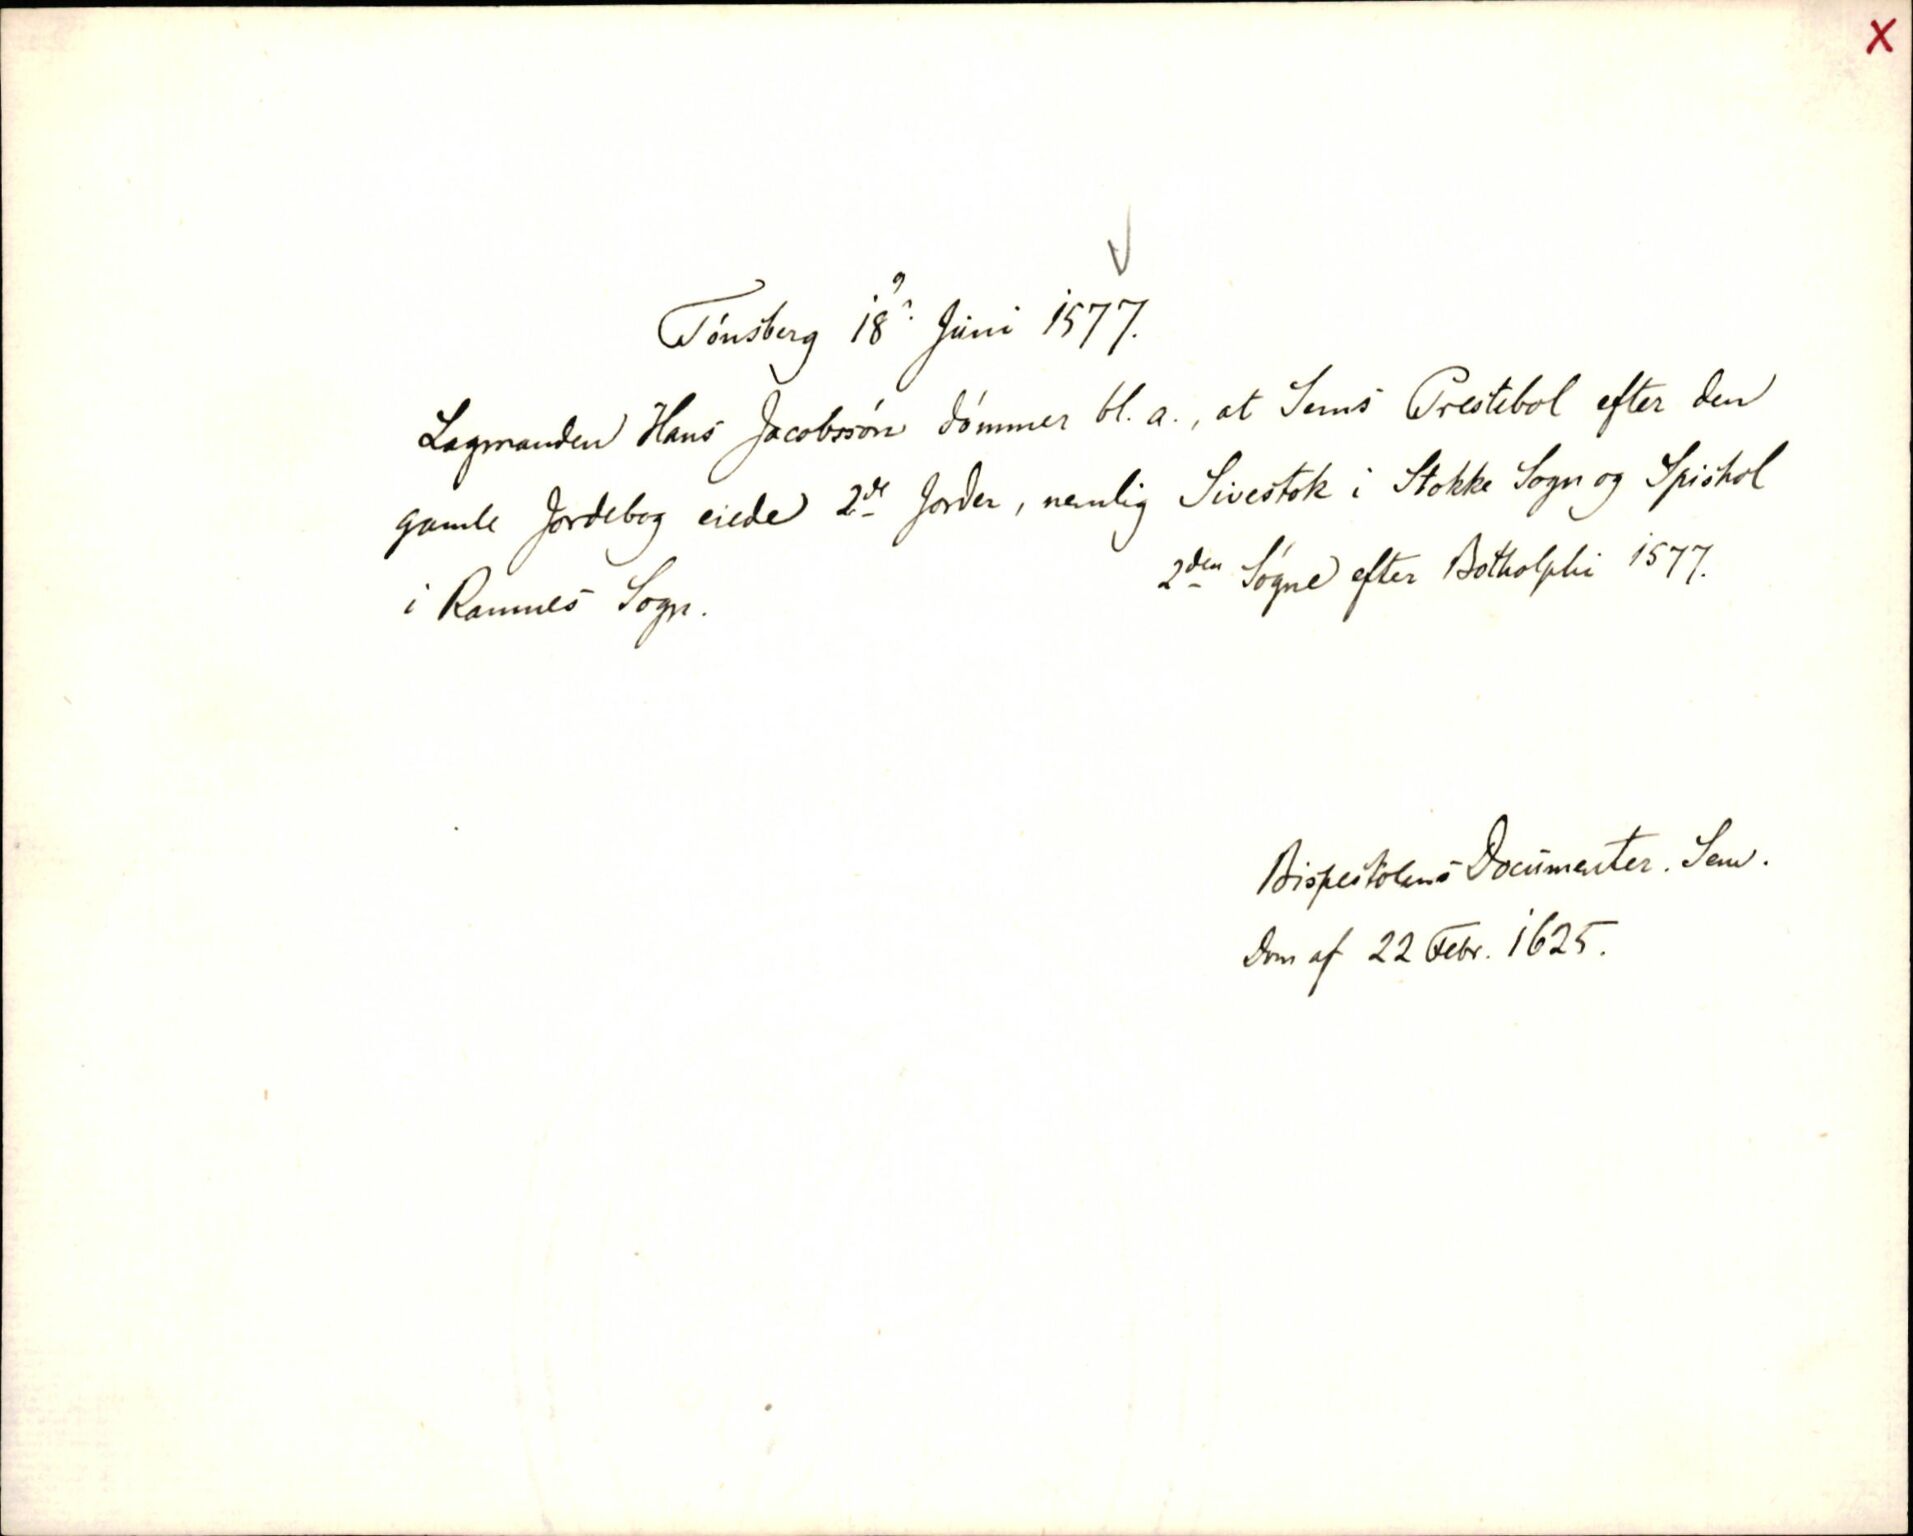 X
Tónsberg 18? Juni 1577.
Lagmanden Hans Jacobssón dómmer bl. a., at Sems Prestebol efter den
gamle Jordebog eiede 2de Jorder, nemlig Sivestok i Stokke Sogn og Spishol
i Ramnes Sogn. 2den Sógne efter Botholphi 1577.
Bispestolens Documenter. Sem.
Dom af 22 Febr. 1625.